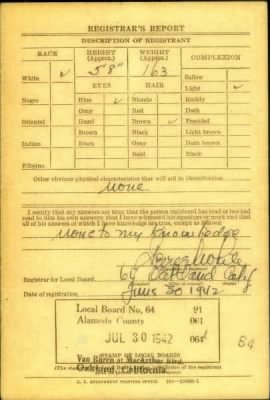 REGISTRAR'S REPORT
DESCRIPTION OF REGISTRANT
RACE HEIGHT (Approx.) WEIGHT (Approx.) COMPLEXION
5'8" 163 Sallow
White ✓ Light ✓
EYES HAIR Ruddy
Negro Blue ✓ Blonde Dark
Gray Red Freckled
Oriental Hazel Brown ✓ Light brown
Brown Black Dark brown
Indian Black Gray Black
Bald
Filipino
Other obvious physical characteristics that will aid in identification
None
I certify that my answers are true; that the person registered has read or has had read to him his own answers; that I have witnessed his signature or mark and that all of his answers of which I have knowledge are true, except as follows:
None to my knowledge
Registrar for Local Board 64 Oakland Calif
Date of registration June 30 1942
Local Board No. 64 91
Alameda County 001
JUL 30 1942 064
64
(STAMP OF LOCAL BOARD)
Van Buren at MacArthur Blvd.
Oakland, California
U. S. GOVERNMENT PRINTING OFFICE